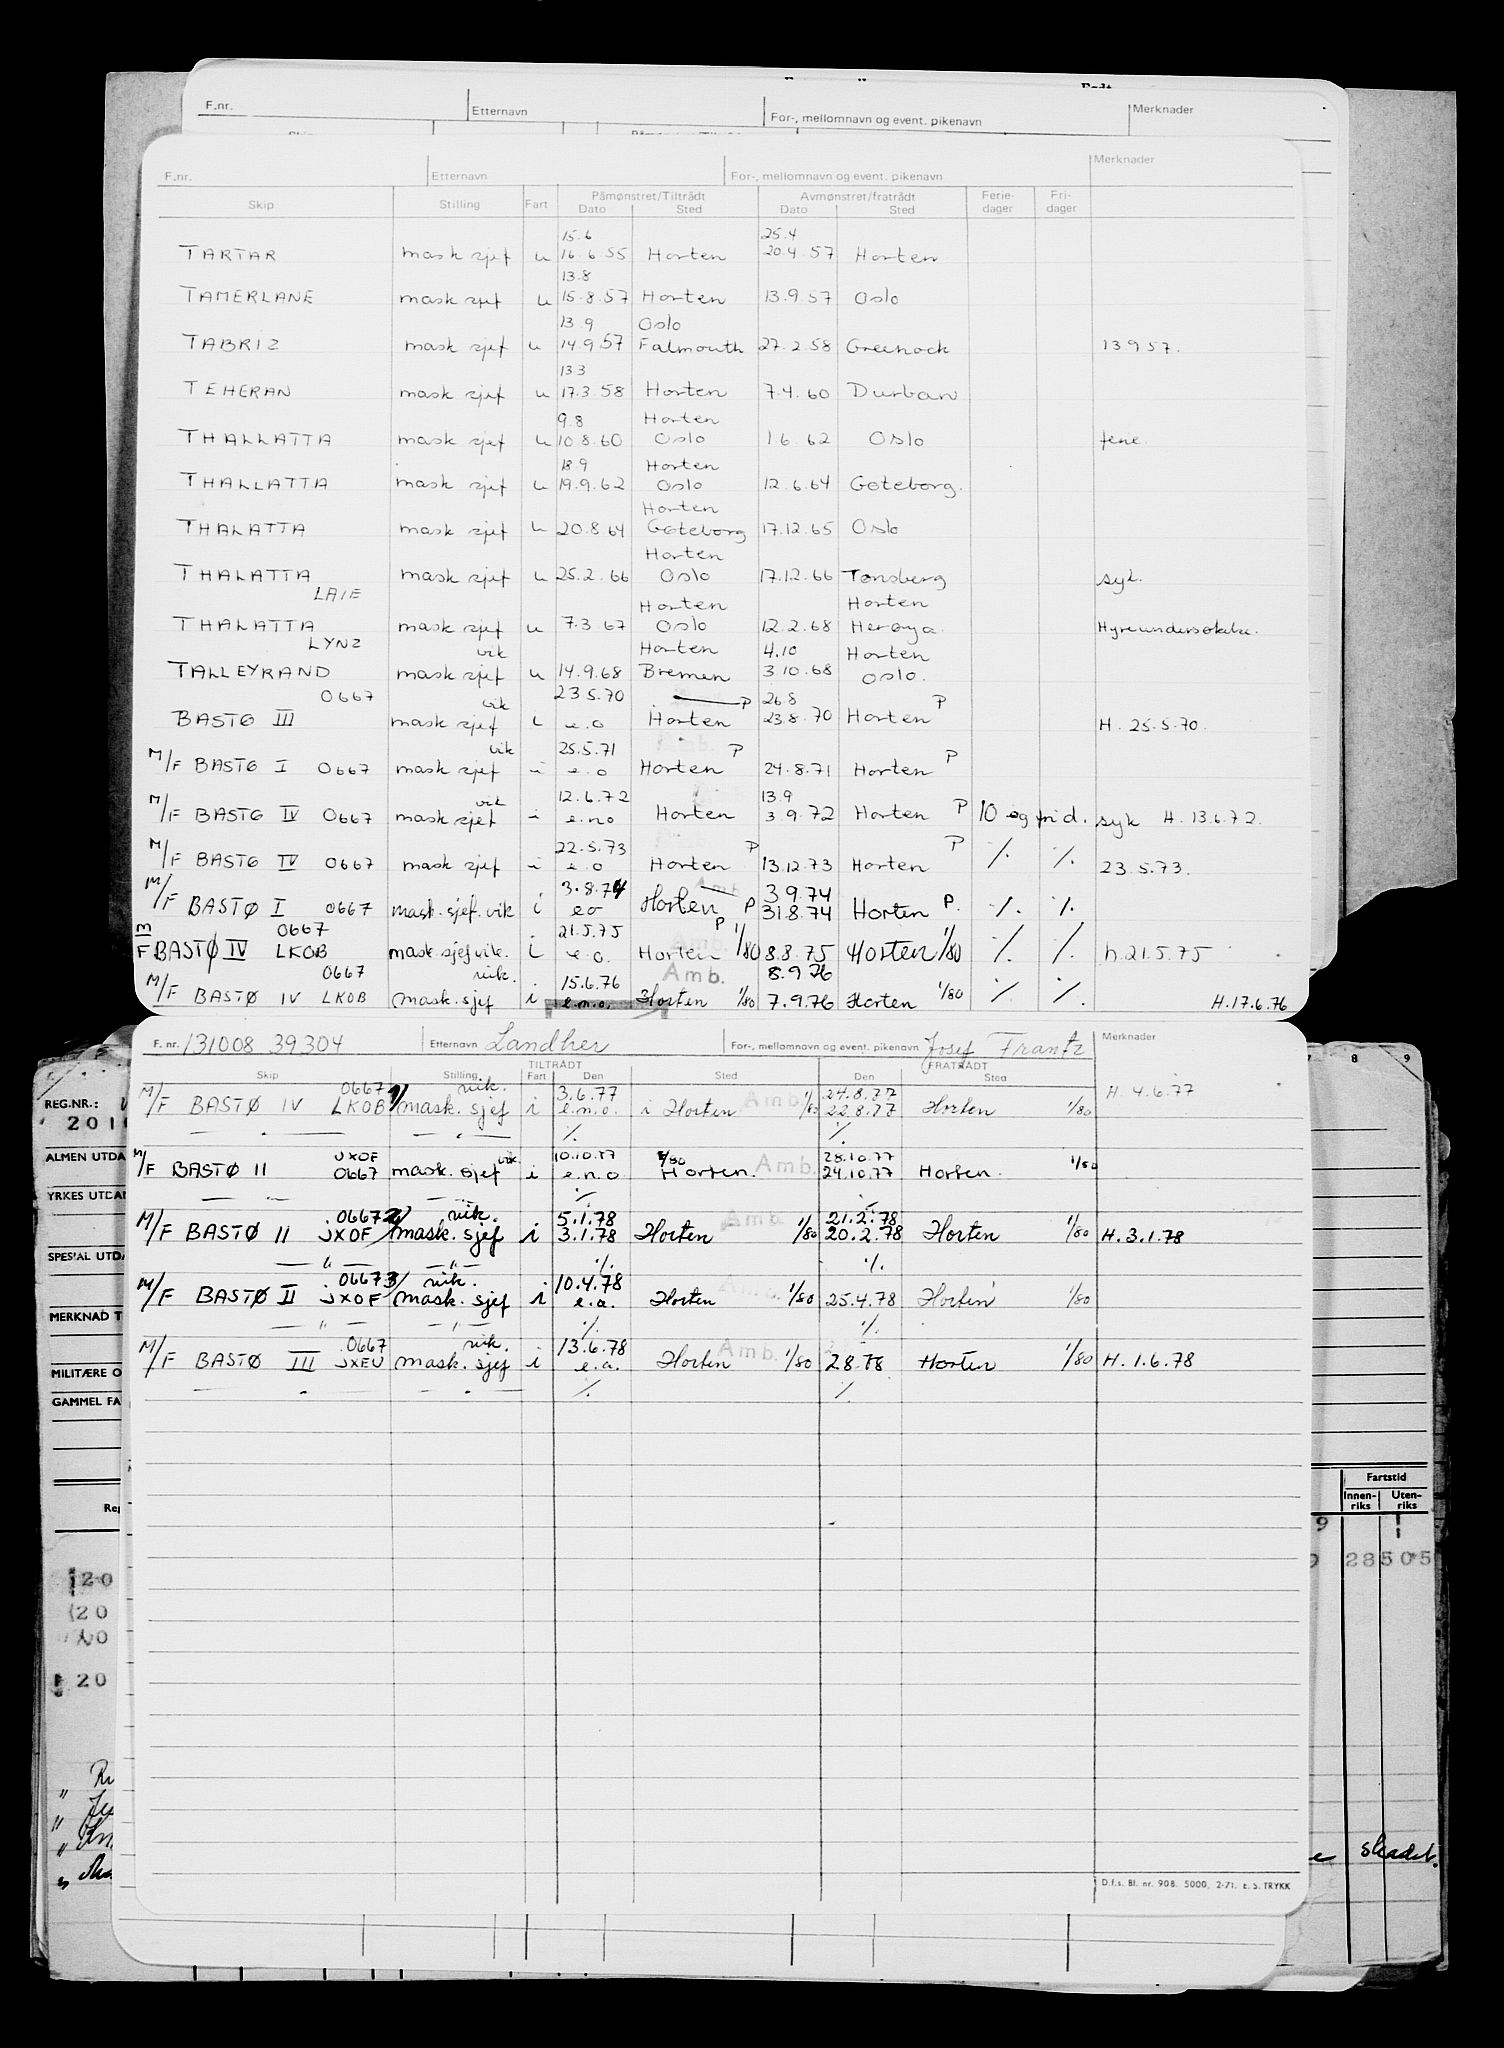 F.nr. Etternavn For-, mellomnavn og event. pikenavn Merknader
F.nr. Etternavn For-, mellomnavn og event. pikenavn Merknader
Skip Stilling Fart Påmønstret/Tiltrådt Dato Sted Avmønstret/fratrådt Dato Sted Ferie-dager Fri-dager
15.6 25.4
TARTAR mask sjef u 16.6.55 Horten 20.4.57 Horten
13.8
TAMERLANE mask sjef u 15.8.57 Horten 13.9.57 Oslo
13.9 Oslo
TABRIZ mask sjef u 14.9.57 Falmouth 27.2.58 Greenock 13957.
13.3
TEHERAN mask sjef u 17.3.58 Horten 7.4.60 Durban
9.8 Horten
THALLATTA mask sjef u 10.8.60 Oslo 1.6.62 Oslo ferie.
18.9 Horten
THALLATTA mask sjef u 19.9.62 Oslo 12.6.64 Göteborg.
Horten
THALATTA mask sjef u 20.8.64 Göteborg 17.12.65 Oslo
Horten
THALATTA mask sjef u 25.2.66 Oslo 17.12.66 Tønsberg syk.
LAIE Horten Horten
THALATTA mask sjef u 7.3 67 Oslo 12.2.68 Herøya. Hyreundersøkelse.
LYNZ vik Horten 4.10 Horten
TALLEYRAND mask sjef u 14.9.68 Bremen 3.10.68 Oslo.
0667 vik 23.5.70 P 26.8 P
BASTØ III mask sjef i e.o Horten 23.8.70 Horten H. 25.5.70.
vik 25.5.71 P P
M/F BASTØ I 0667 mask sjef i e.o Horten 24.8.71 Horten
vik 12.6.72 13.9
M/F BASTØ IV 0667 mask sjef i e.no Horten 3.9.72 Horten P 10 og frid. syk H. 13.6.72.
22.5.73 P P
M/F BASTØ IV 0667 mask sjef i e.o Horten 13.12.73 Horten ./. ./. 23.5.73.
3.8.74 Amb. 3.9.74
M/F BASTØ I 0667 mask. sjef. vik i eo Horten P 31.8.74 Horten P. ./. ./.
0667 21.5.75 P
M/F BASTØ IV LKOB mask.sjef vik. i e.o. Horten Amb. 1/80 8.8.75 Horten 1/80 ./. ./. h.21.5.75
0667 vik. 15.6.76 Amb. 8.9 76
M/F BASTØ IV LKOB mask. sjef i e.n.o. Horten 1/80 7.9.76 Horten 1/80 ./. ./. H.17.6.76
F. nr. 131008 39304 Etternavn Landher For-, mellomnavn og event. pikenavn Josef Frantz Merknader
TILTRÅDT FRATRÅDT
Skip Stilling Fart Den Sted Den Sted
0667 1/ vik. 3.6.77 Amb. 24.8.77 H. 4.6.77
M/F BASTØ IV LKOB mask. sjef i e.n.o. i Horten 1/80 22.8.77 Horten 1/80
— " — — " — ./. ./.
JXOF vik 10.10.77 1/80 28.10.77 1/80
M/F BASTØ II 0667 mask. sjef i e.n.o Horten. Amb. 24.10.77 Horten.
— " — — " — ./. ./.
0667 2/ vik. 5.1.78 Amb. 21.2.78
M/F BASTØ II JXOF mask. sjef i 3.1.78 Horten 1/80 20.2.78 Horten 1/80 H.3.1.78
— " — — " — ./. ./.
0667 3/ vik. 10.4.78 Amb.
M/F BASTØ II JXOF mask. sjef i e.a. Horten 1/80 25.4.78 Horten 1/80
— " — — " — ./. ./.
0667 vik. 13.6.78 Amb.
M/F BASTØ III JXEU mask. sjef i e.a. Horten 1/80 2.8.78 Horten 1/80 H. 1.6.78
— " — — " — ./. ./.
D.f.s. Bl. nr. 908. 5000, 2-71. E. S. TRYKK
REG.NR.:
201
ALMEN UTDA
YRKES UTDA
SPESIAL UTDA
MERKNAD T
MILITÆRE O
GAMMEL FA
8 9
Fartstid
Innen-riks Uten-riks
9
28505
20
20
20
skadet.